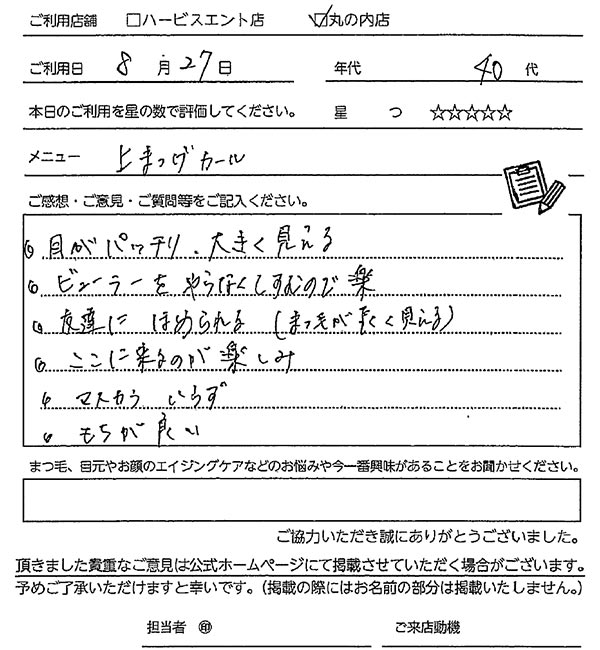 ご利用店舗 □ハービスエント店 ☑丸の内店
ご利用日 8 月 27 日 年代 40 代
本日のご利用を星の数で評価してください。 星 つ ☆☆☆☆☆
メニュー 上まつげカール
ご感想・ご意見・ご質問等をご記入ください。
◎ 目がパッチリ、大きく見える
◎ ビューラーをやらなくてすむので楽
◎ 友達にほめられる (まつ毛が長く見える)
◎ ここに来るのが楽しみ
◎ マスカラいらず
◎ もちが良い
まつ毛、目元やお顔のエイジングケアなどのお悩みや今一番興味があることをお聞かせください。
ご協力いただき誠にありがとうございました。
頂きました貴重なご意見は公式ホームページにて掲載させていただく場合がございます。
予めご了承いただけますと幸いです。(掲載の際にはお名前の部分は掲載いたしません。)
担当者 ㊞ ご来店動機